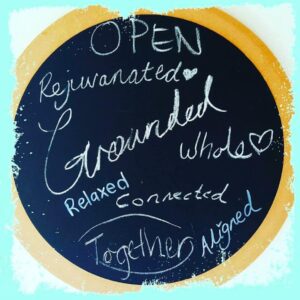 OPEN
Rejuvanated♥
Grounded
Whole♡
Relaxed
Connected
Together
Aligned